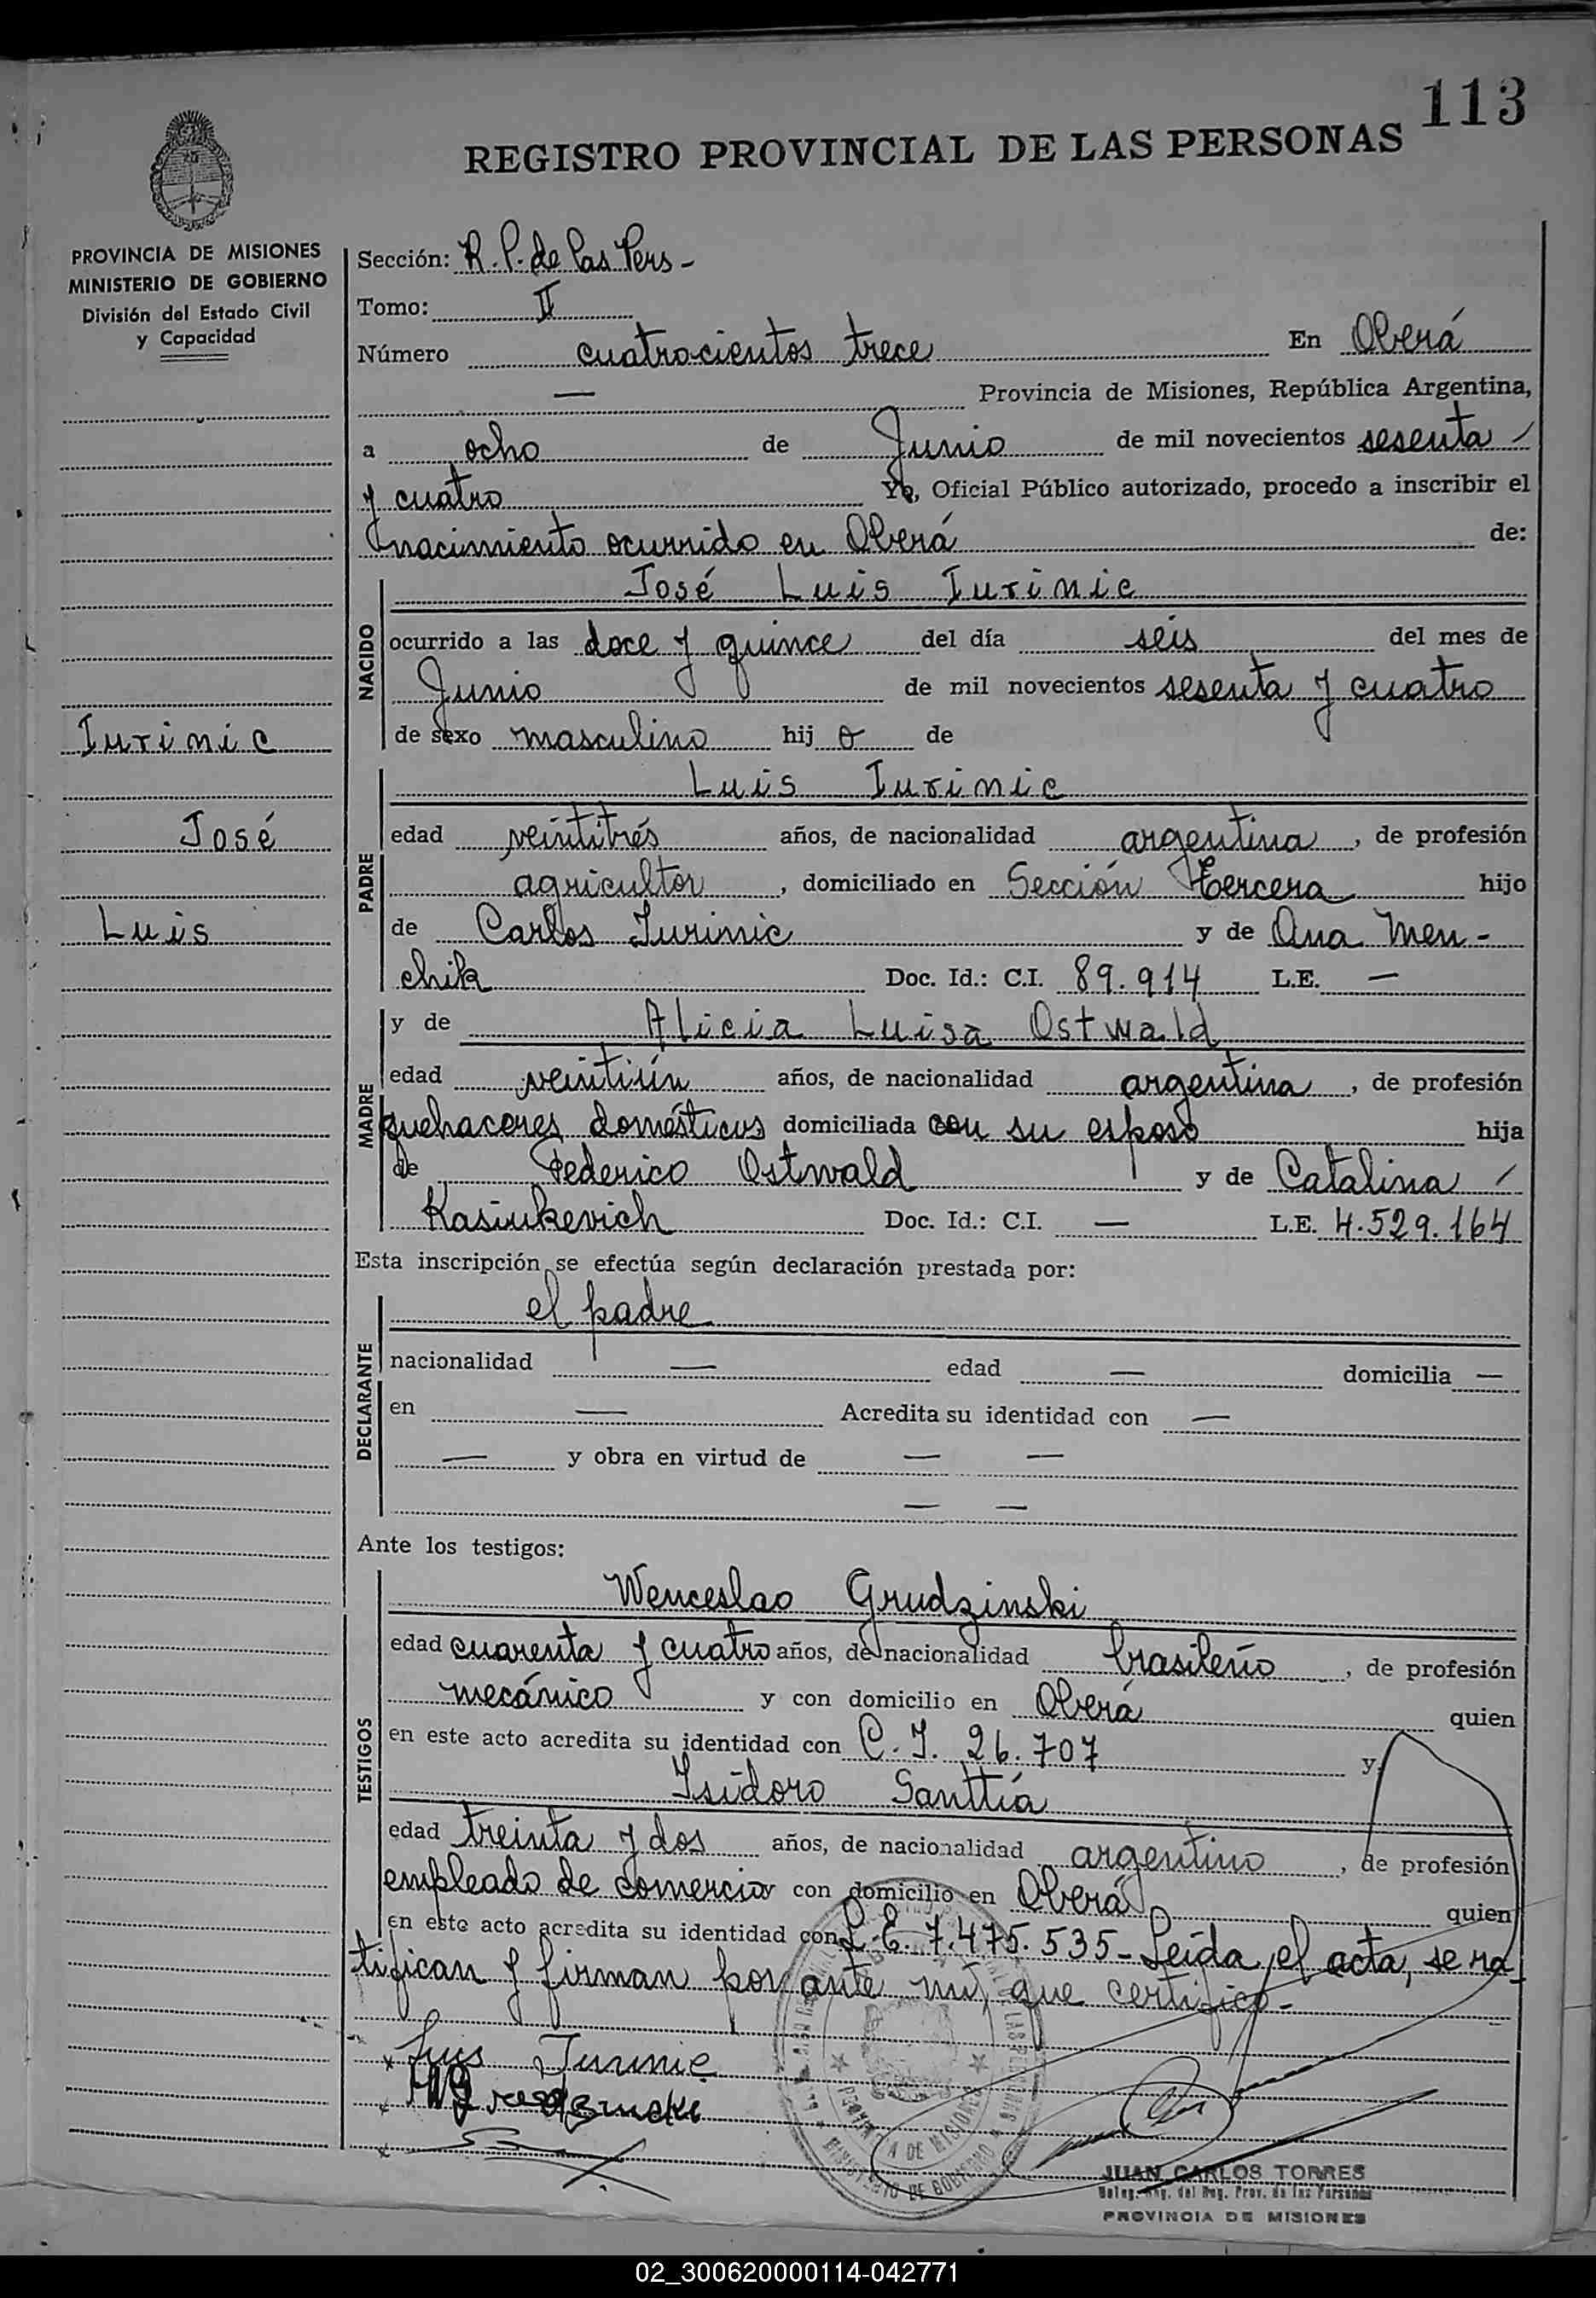 113
REGISTRO PROVINCIAL DE LAS PERSONAS
PROVINCIA DE MISIONES
MINISTERIO DE GOBIERNO
División del Estado Civil
y Capacidad
Iurinic
José
Luis
Sección: R. P. de las Pers -
Tomo: II
Número cuatrocientos trece En Oberá
— Provincia de Misiones, República Argentina,
a ocho de Junio de mil novecientos sesenta /
y cuatro Yo, Oficial Público autorizado, procedo a inscribir el
nacimiento ocurrido en Oberá de:
NACIDO
José Luis Iurinic
ocurrido a las doce y quince del día seis del mes de
Junio de mil novecientos sesenta y cuatro
de sexo masculino hij o de
PADRE
Luis Iurinic
edad veintitrés años, de nacionalidad argentina, de profesión
agricultor, domiciliado en Sección Tercera hijo
de Carlos Iurinic y de Ana Men-
chik Doc. Id.: C.I. 89.914 L.E. —
MADRE
y de Alicia Luisa Ostwald
edad veintiún años, de nacionalidad argentina, de profesión
quehaceres domésticos domiciliada con su esposo hija
de Federico Ostwald y de Catalina /
Kasiukevich Doc. Id.: C.I. — L.E. 4.529.164
Esta inscripción se efectúa según declaración prestada por:
DECLARANTE
el padre
nacionalidad — edad — domicilia —
en — Acredita su identidad con —
— y obra en virtud de — —
— —
Ante los testigos:
TESTIGOS
Wenceslao Grudzinski
edad cuarenta y cuatro años, de nacionalidad brasileño, de profesión
mecánico y con domicilio en Oberá quien
en este acto acredita su identidad con C. I. 26.707 y
Isidoro Santtía
edad treinta y dos años, de nacionalidad argentino, de profesión
empleado de comercio y con domicilio en Oberá quien
en este acto acredita su identidad con L.E. 7.475.535 - Leída el acta, se ra-
tifican y firman por ante mí, que certifico -
x Luis Iurinic
x
x
PROVINCIA DE MISIONES
MINISTERIO DE GOBIERNO
JUAN CARLOS TORRES
Deleg. del Reg. Prov. de las Personas
PROVINCIA DE MISIONES
02_300620000114-042771